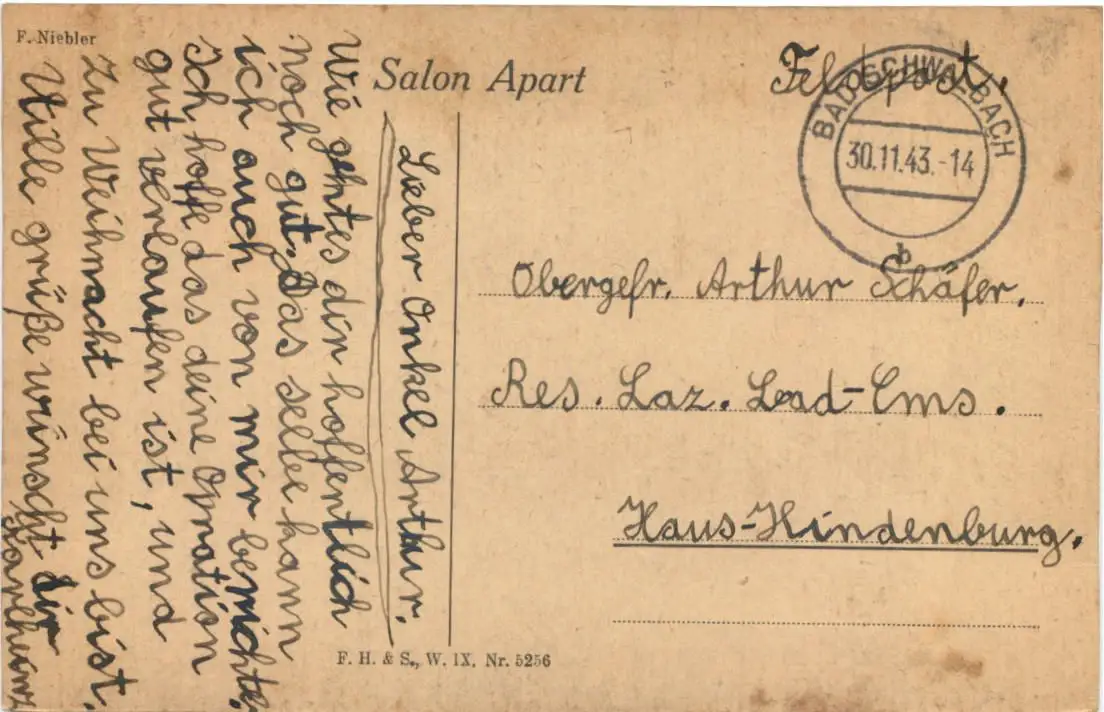 F. Niebler
Salon Apart
Feldpost.
BAD SCHWALBACH
30.11.43.-14
b
Obergefr. Arthur Schäfer.
Res. Laz. Bad-Ems.
Haus-Hindenburg.
Lieber Onkel Arthur.
Wie gehtes dir hoffentlich
noch gut. Das selbe kann
ich auch von mir berichte.
Ich hoffe das deine Opration
gut verlaufen ist, und
Zu Weihnacht bei uns bist.
Viille grüße wünscht dir
Karlheinz
F. H. & S., W. IX. Nr. 5256